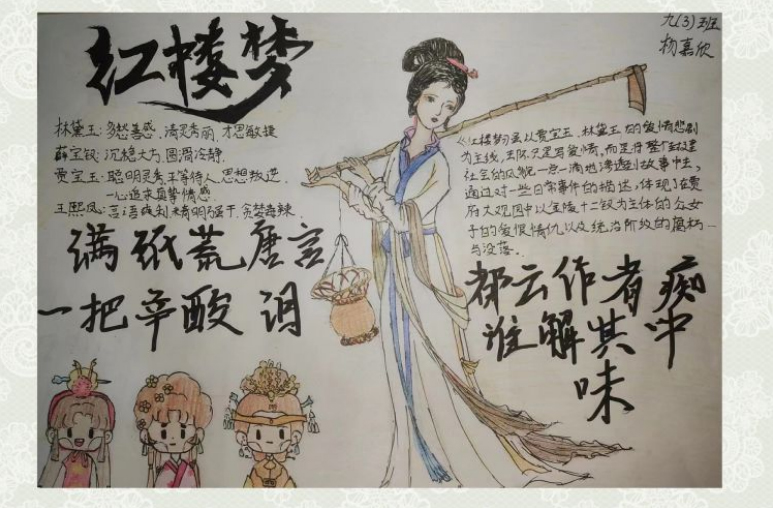 红楼梦
九(3)班
杨嘉欣
林黛玉:多愁善感、清灵秀丽,才思敏捷
薛宝钗:沉稳大方,圆滑冷静.
贾宝玉:聪明灵秀,平等待人,思想叛逆,
一心追求真挚情感.
王熙凤:言语 精明强干,贪婪毒辣.
满纸荒唐言
一把辛酸泪
《红楼梦》是以贾宝玉、林黛玉的爱情悲剧
为主线,王际只是写爱情,而是将整个封建
社会的风貌一点一滴地渗透到故事中去,
通过对一些日常事件的描述,体现了在贾
府大观园中以金陵十二钗为主体的众女
子的爱恨情仇以及统治阶级的腐朽
与没落.
都云作者痴
谁解其中
味